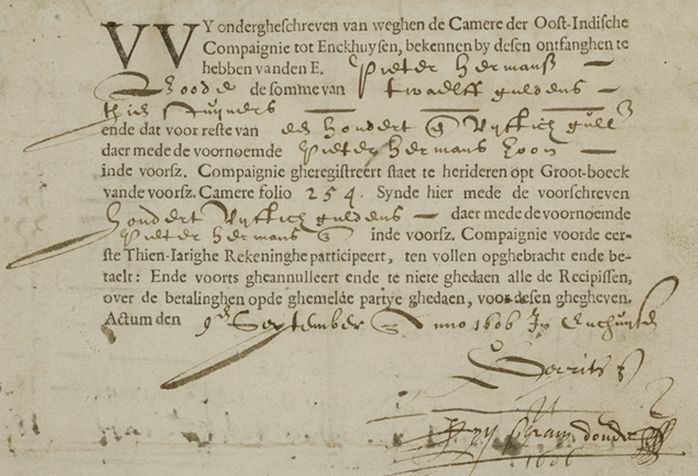 VVY ondergheschreven van weghen de Camere der Oost-Indische
Compaignie tot Enckhuysen, bekennen by desen ontfanghen te
hebben vanden E. Pieter Hermanß
de somme van twaelff guldens
thien stuyvers
ende dat voor reste van een hondert Vijftich gull
daer mede de voornoemde Pieter Hermans
inde voorsz. Compaignie gheregistreert staet te herideren opt Groot-boeck
vande voorsz. Camere folio 254. Synde hier mede de voorschreven
hondert Vijftich guldens daer mede de voornoemde
Pieter Hermans inde voorsz. Compaignie voorde eer-
ste Thien-Iarighe Rekeninghe participeert, ten vollen opghebracht ende be-
taelt: Ende voorts gheannulleert ende te niete ghedaen alle de Recipissen,
over de betalinghen opde ghemelde partye ghedaen, voor desen ghegheven.
Actum den 9en September Anno 1606 In
Gerrits
1606